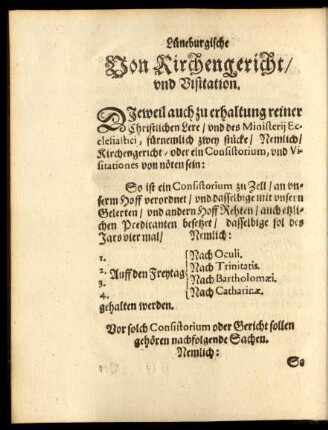 Lüneburgische
Von Kirchengericht/
vnd Visitation.
DJeweil auch zu erhaltung reiner
Christlichen Lere / vnd des Ministerij Ec-
clesiastici, fürnemlich zwey stücke / Nemlich/
Kirchengericht / oder ein Consistorium, vnd Vi-
sitationes von nöten sein:
So ist ein Consistorium zu Zell / an vn-
serm Hoff verordnet / vnd dasselbige mit vnsern
Gelerten / vnd andern Hoff Rehten / auch etzli-
chen Predicanten besetzet / dasselbige sol des
Jars vier mal / Nemlich:
1. Nach Oculi.
2. Auff den Freytag Nach Trinitatis.
3. Nach Bartholomæi.
4. Nach Catharinæ.
gehalten werden.
Vor solch Consistorium oder Gericht sollen
gehören nachfolgende Sachen.
Nemlich: